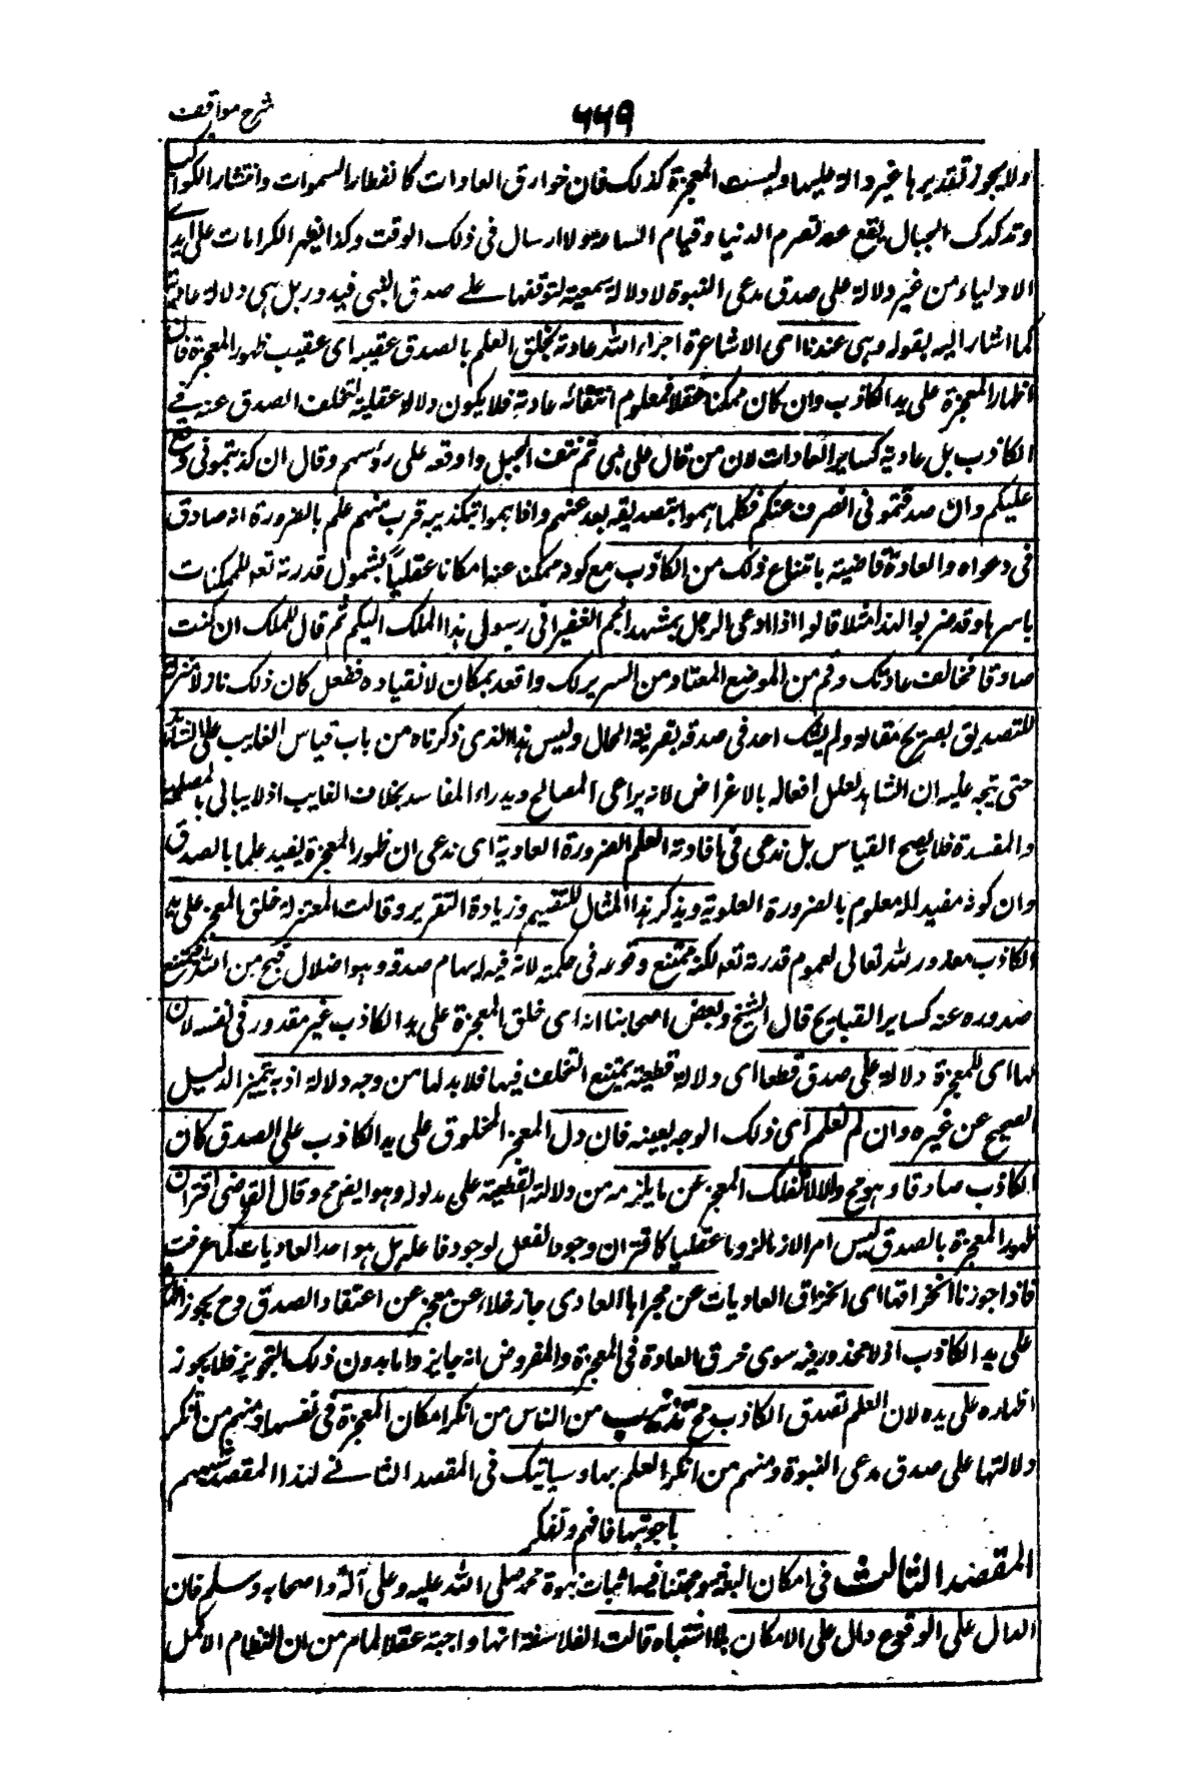 شرح مواقف
٦٦٩
ولا يجوز تقديرها غير دالة عليها وليست المعجزة كذلك فان خوارق العادات كانفطار السموات وانتشار الكواكب
وتدكدك الجبال يقع عند تصرم الدنيا وقيام الساعة ولا ارسال فى ذلك الوقت وكذا يظهر الكرامات على ايدى
الاولياء من غير دلالة على صدق مدعى النبوة لا دلالة سمعية لتوقفها على صدق النبى فيدور بل هى دلالة عادية
كما اشار اليه بقوله وهى عندنا اى الاشاعرة اجراء الله عادته بخلق العلم بالصدق عقيبه اى عقيب ظهور المعجزة فان
اظهار المعجزة على يد الكاذب وان كان ممكنا عقلا فمعلوم انتفائه عادة فلا يكون دلالة عقلية لتخلف الصدق عنه فى
الكاذب بل عادية كساير العادات لان من قال على نبى ثم نتق الجبل واوقعه على رؤسهم وقال ان كذبتمونى وقع
عليكم وان صدقتمونى انصرف عنكم فكلما هموا بتصديقه بعد عنهم واذا هموا بتكذيبه قرب منهم علم بالضرورة انه صادق
فى دعواه والعادة قاضية بامتناع ذلك من الكاذب مع كونه ممكنا عنه امكانا عقليا بشمول قدرته تعه للممكنات
باسرها وقد ضربوا لهذا مثلا قالوا اذا ادعى الرجل بمشهد الجم الغفير انى رسول هذا الملك اليكم ثم قال للملك ان كنت
صادقا فخالف عادتك وقم من الموضع المعتاد من السرير لك واقعد بمكان لا نقياده ففعل كان ذلك نازلا منزلة
للتصديق بصريح مقاله ولم يشك احد فى صدقه بقرينة الحال وليس هذا الذى ذكرناه من باب قياس الغايب على الشاهد
حتى يتجه عليه ان الشاهد لعلل افعاله بالاغراض لانه يراعى المصالح ويدراء المفاسد بخلاف الغايب اذ لا يبالى بالمصلحة
والمفسدة فلا يصح القياس بل ندعى فى افادته العلم الضرورة العادية اى ندعى ان ظهور المعجزة يفيد علما بالصدق
وان كونه مفيدا له معلوم بالضرورة العادية ويذكر هذا المثال للتفهيم وزيادة التقرير وقالت المعتزلة خلق المعجز على يد
الكاذب مقدور لله تعالى لعموم قدرته تعه لكنه ممتنع وقوعه فى حكمته لان فيه ايهام صدقه وهو اضلال قبيح من الله فيمتنع
صدوره عنه كساير القبايح قال الشيخ وبعض اصحابنا انه اى خلق المعجزة على يد الكاذب غير مقدور فى نفسه لان
لها اى للمعجزة دلالة على صدق قطعا اى دلالة قطعية يمتنع التخلف فيها فلا بد لها من وجه دلالة اذ به يتميز الدليل
الصحيح عن غيره وان لم نعلم اى ذلك الوجه بعينه فان دل المعجز المخلوق على يد الكاذب على الصدق كان
الكاذب صادقا وهو مح والا لانفلك المعجز عن ما يلزمه من دلالته القطعية على مدلوله وهو ايض مح وقال القاضى اقتران
ظهور المعجزة بالصدق ليس امرا لازما لزوما عقليا كاقتران وجود الفعل لوجود فاعله بل هو احد العاديات كما عرفت
فاذا جوزنا انخراقها اى انخراق العاديات عن مجراها العادى جاز خلاء عن معجز عن اعتقاد الصدق وح يجوز اظهاره
على يد الكاذب اذ لا محذور فيه سوى خرق العادة فى المعجزة والمفروض انه جايز واما بدون ذلك التجويز فلا يجوز
اظهاره على يده لان العلم بصدق الكاذب مح تذنيب من الناس من انكر امكان المعجزة فى نفسها ومنهم من انكر
دلالتها على صدق مدعى النبوة ومنهم من انكر العلم بها وسياتيك فى المقصد الثانى لهذا المقصد شبههم
باجوبتها فافهم وتفكر
المقصد الثالث فى امكان البعثة وحجتنا فيها اثبات نبوة محمد صلى الله عليه وعلى آله واصحابه وسلم فان
الدال على الوقوع دال على الامكان بلا اشتباه قالت الفلاسفة انها واجبة عقلا لما مر من ان النظام الاكمل